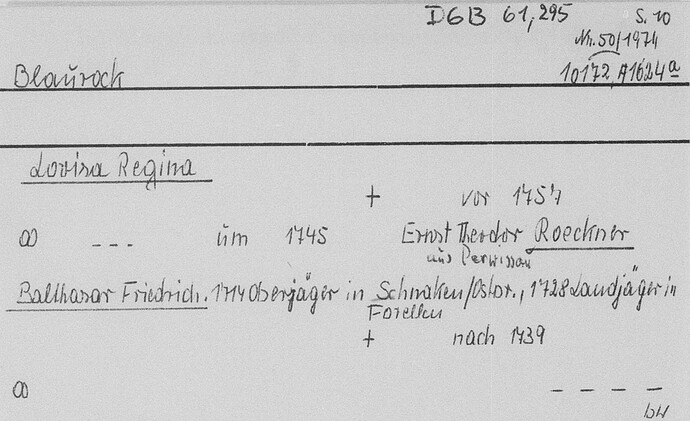 DGB 61,295 S. 10
Nr. 50/1974
Blaŭrock 10172, A1624a
Lovisa Regina
+ vor 1757
∞ --- ŭm 1745 Ernst Theodor Roeckner
aus Perwissau
Balthasar Friedrich. 1714 Oberjäger in Schnaken/Ostpr., 1728 Landjäger in
Forellen
+ nach 1739
∞ – – – –